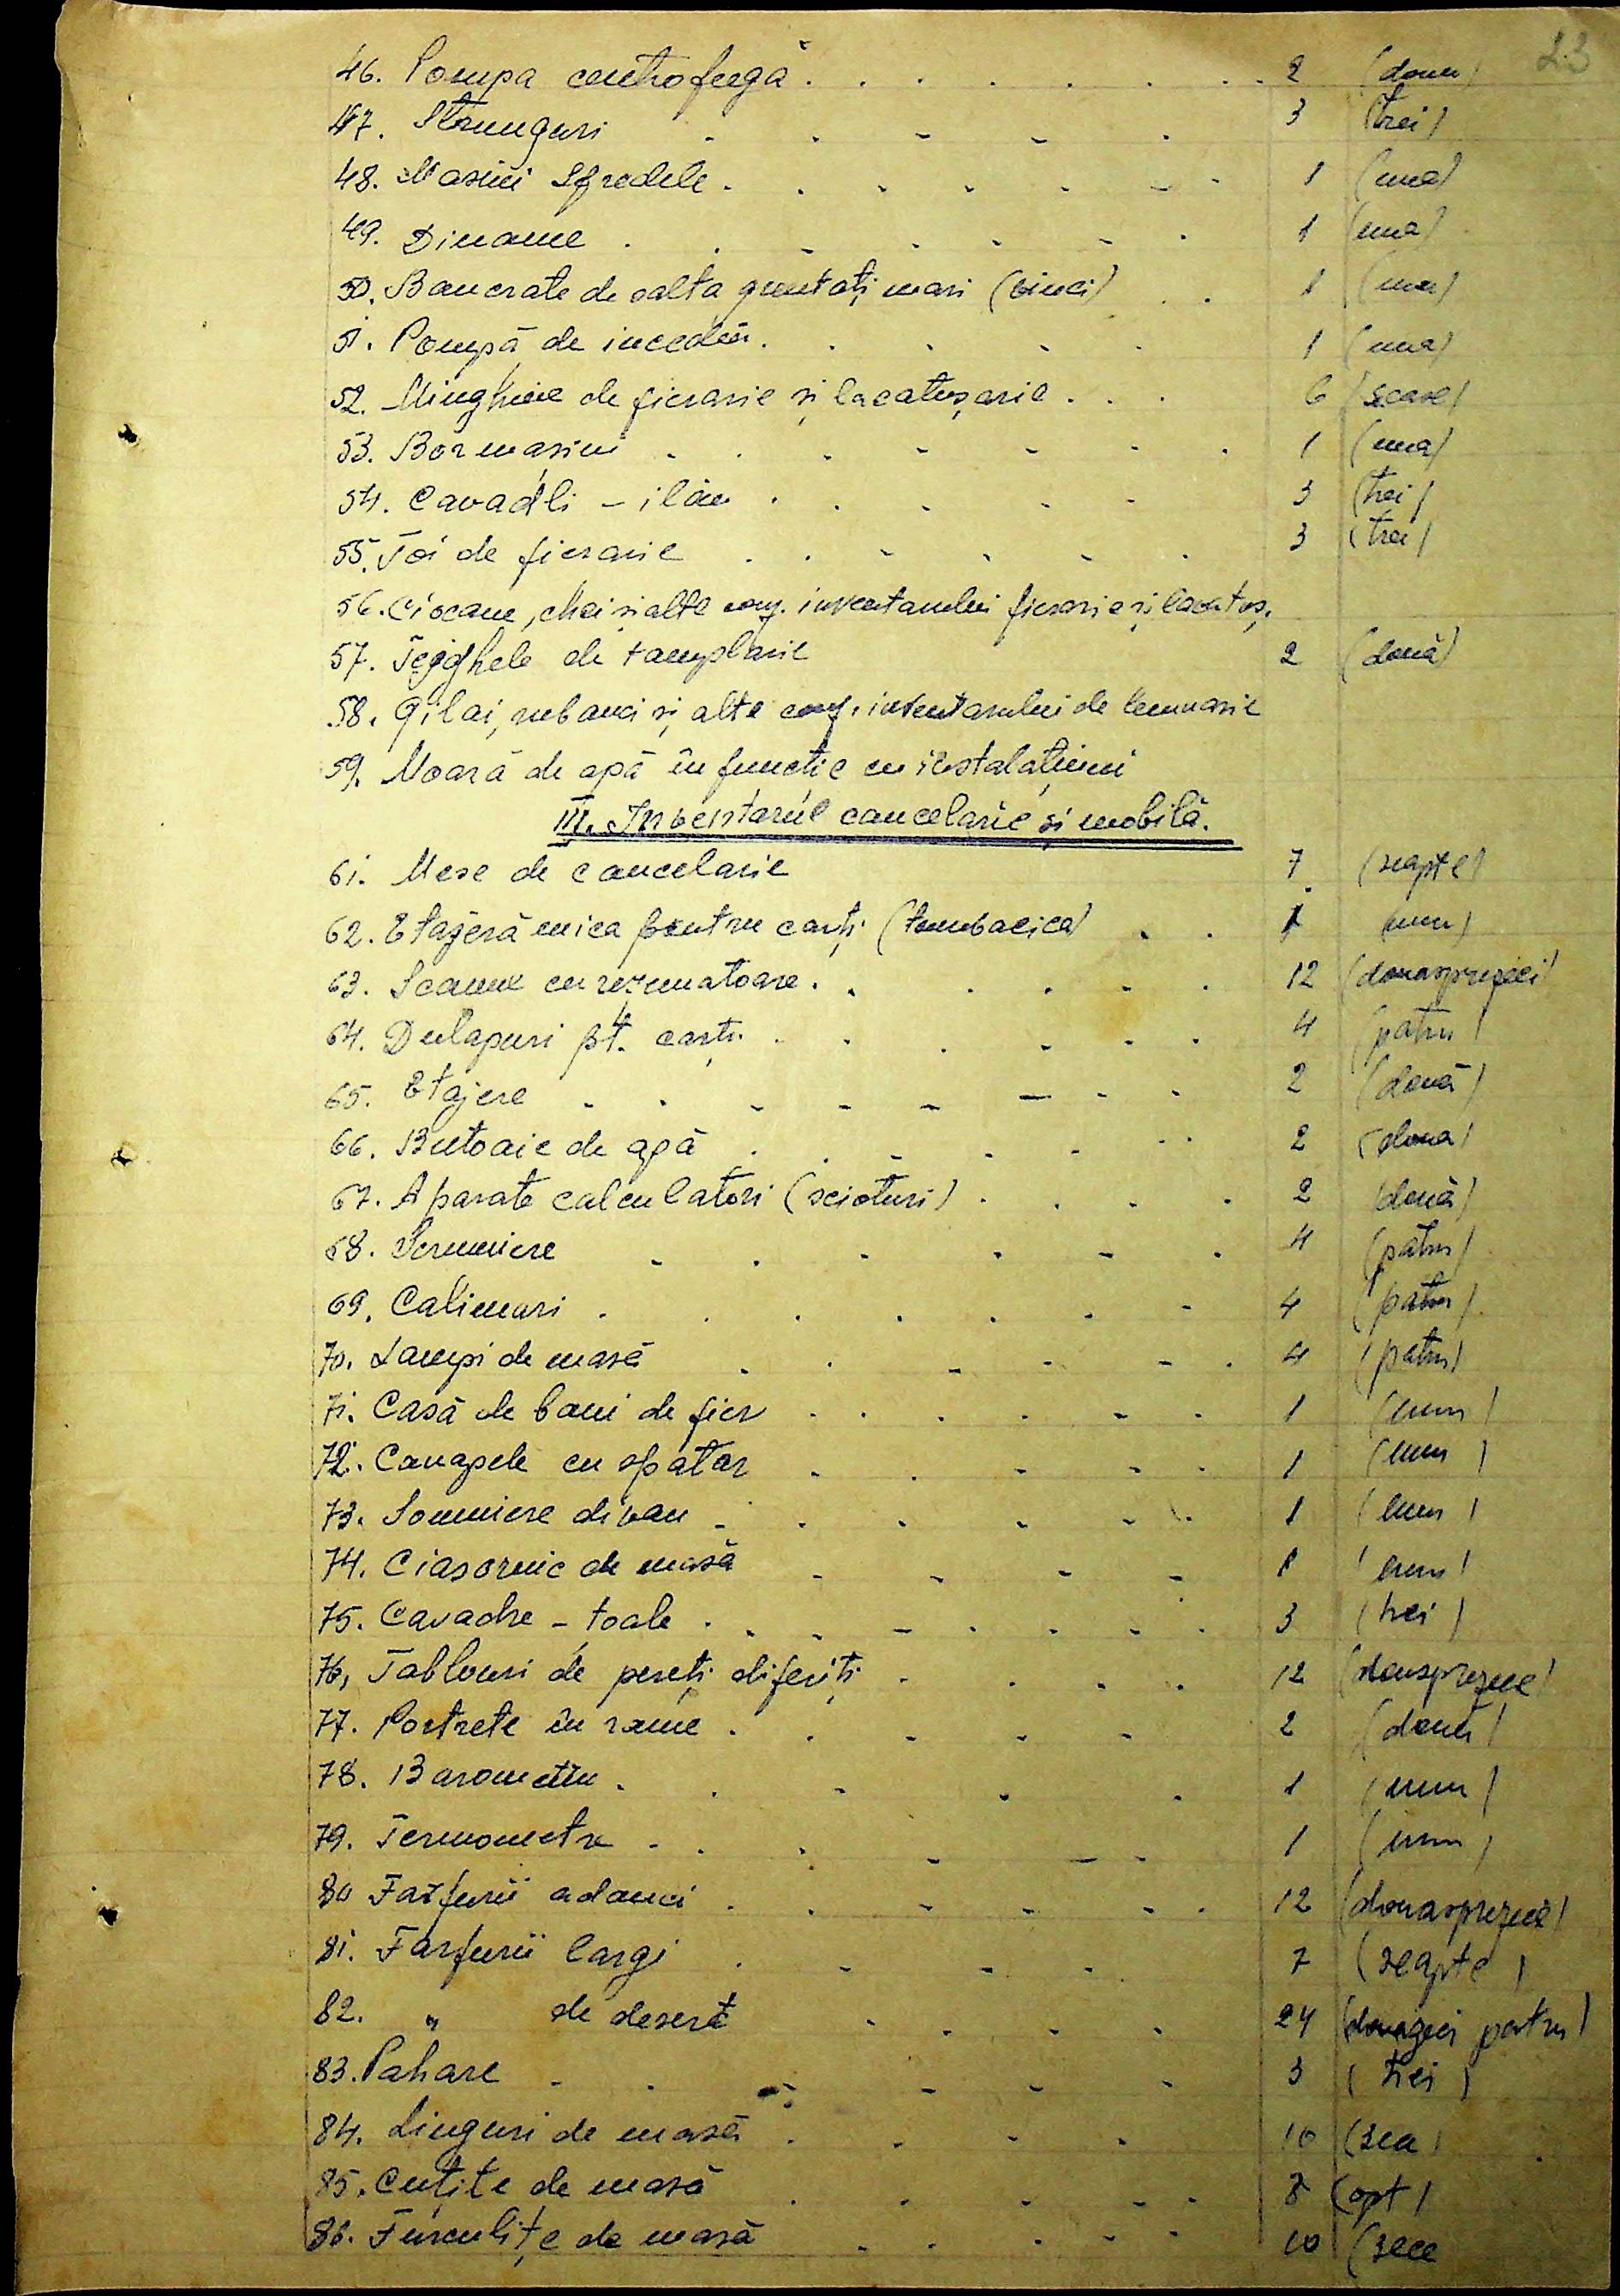 23
46. Pompa centrofugă . . . . . . . 2 (doua)
47. Strunguri - . - - . 3 (trei)
48. Masini Sfredele . . . . . - . 1 (una)
49. Diname . . - . . - . 1 (una)
50. Bancrate de salta greutăți mari (vinci) . . 1 (una)
51. Pompă de incediu . . . . . 1 (una)
52. Minghine de fierarie și lacatușarie . . . 6 (sease)
53. Bormasini - . . - - - . 1 (una)
54. Cavadli - ilău . . . - - 3 (trei)
55. Foi de fierarie . . - . - . 3 (trei)
56. Ciocane, chei si alte inventarului fierarie și lacatuș.
57. Tejghele de tamplarie 2 (două)
58. Gilai, rubanci și alte inventarului de lemnarie
59. Moară de apă în functie cu instalațiuni
III. Inventarul cancelarie și mobilă.
61. Mese de cancelarie 7 (sapte)
62. Etajeră mica pentru carți (tumbacica) . . 1 (unu)
63. Scaune cu rezematoare . . . . . . 12 (douasprezeci)
64. Dulapuri pt. carți . . . . . . 4 (patru)
65. Etajere - . - - - - - . 2 (două)
66. Butoaie de apă . . - . . - . 2 (doua)
67. Aparate calculatori (scioturi) . . . . 2 (două)
68. Scrumiere - . - . - . 4 (patru)
69. Calimari . . . . . . - 4 (patru)
70. Lampi de masă - . - - - . 4 (patru)
71. Casă de bani de fier . . . . - . 1 (unu)
72. Canapele cu spatar . . - - . 1 (unu)
73. Somniere divan - . . . - . 1 (unu)
74. Ciasornic de masă - - - - 1 (unu)
75. Cavadre - toale . . . - . . - . 3 (trei)
76. Tablouri de pereți diferiți . . . . 12 (douasprezece)
77. Portrete în rame . . - - - 2 (doua)
78. Barometru . . - . . 1 (unu)
79. Termometre - . . - - . 1 (unu)
80 Farfurii adanci . . - - - . 12 (douasprezece)
81. Farfurii largi . - - . 7 (sapte)
82. „ de desert . . . . 24 (douazeci patru)
83. Pahare - . - - - - 3 (trei)
84. Linguri de masă . - - . 10 (zece)
85. Cuțite de masă . . . - . 8 (opt)
86. Furculițe de masă . . . - - 10 (zece